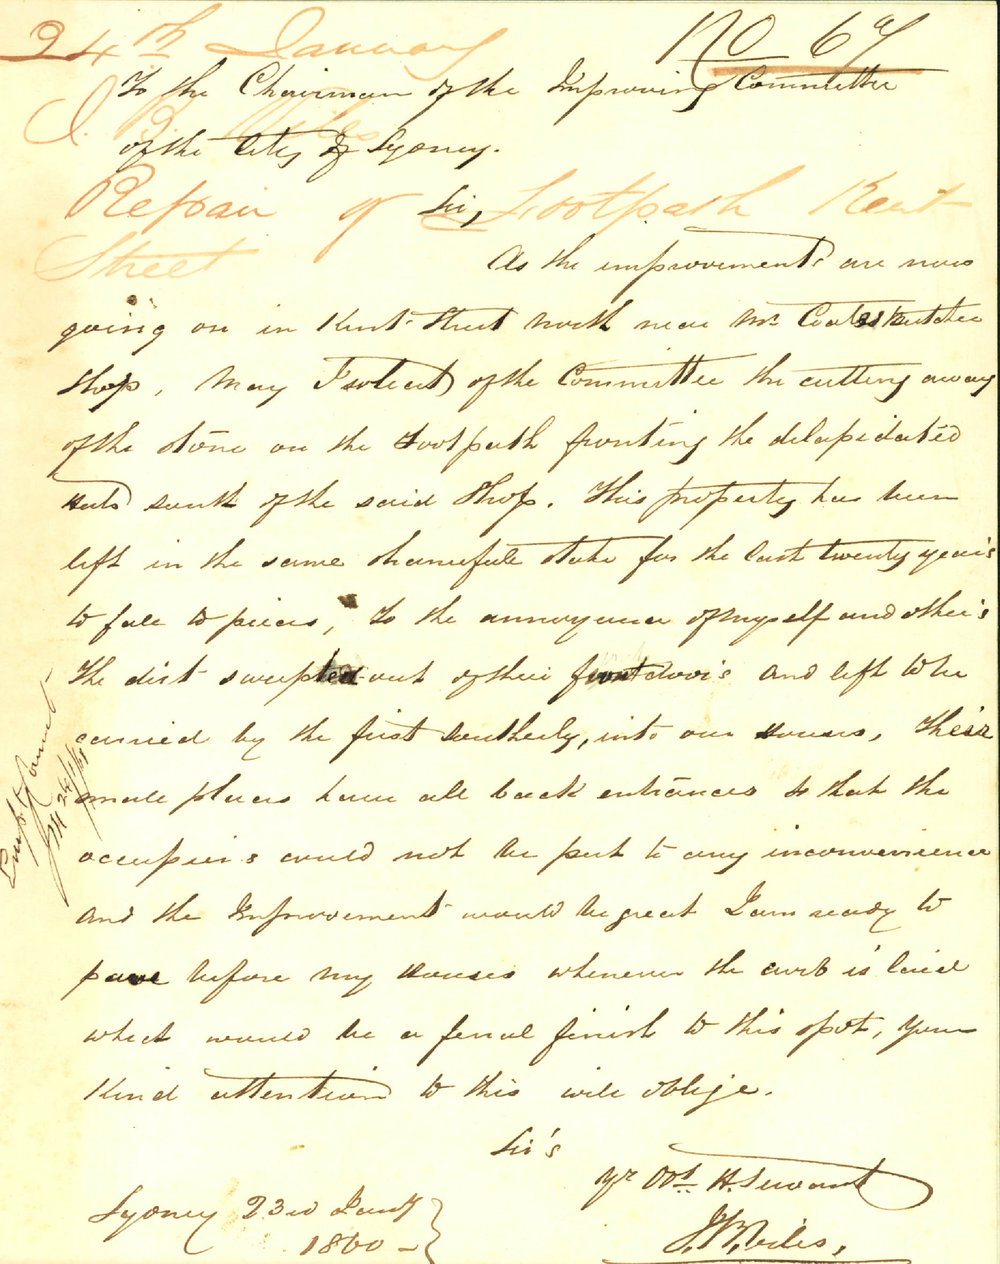 24th January No 67
To the Chairman of the Improving Committee
J. B. Miles
of the City of Sydney.
Repair of Footpath Kent
Sir,
Street
As the improvements are now
going on in Kent-Street North near Mr Coates Butcher
Shop, May I solicit of the Committee the cutting away
of the stone on the Footpath fronting the delapidated
Huts south of the said Shop. This property has been
left in the same shamefull state for the last twenty year's
to fall to pieces, to the annoyance of myself and other's
the dirt swept out of their front door's and left to be
carried by the first southerly, into our Houses, their
small places have all back entrances so that the
occupier's could not be put to any inconvenience
and the Improvement would be great I am ready to
pave before my Houses whenever the curb is laid
which would be a final finish to this spot, your
Kind attention to this will oblige.
Sir's
Yr Obt. H. Servant
J. B. Miles.
Sydney 23rd Jany
1860
24/1/60